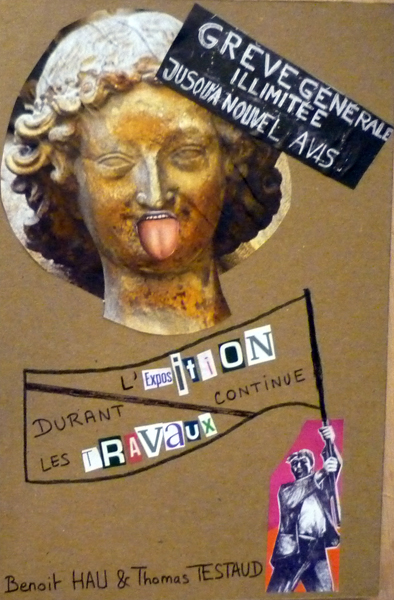 GRÈVE GÉNÉRALE
ILLIMITÉE
JUSQU'A NOUVEL AVIS
L'EXPOSITION
DURANT CONTINUE
LES TRAVAUX
Benoit HAU & Thomas TESTAUD